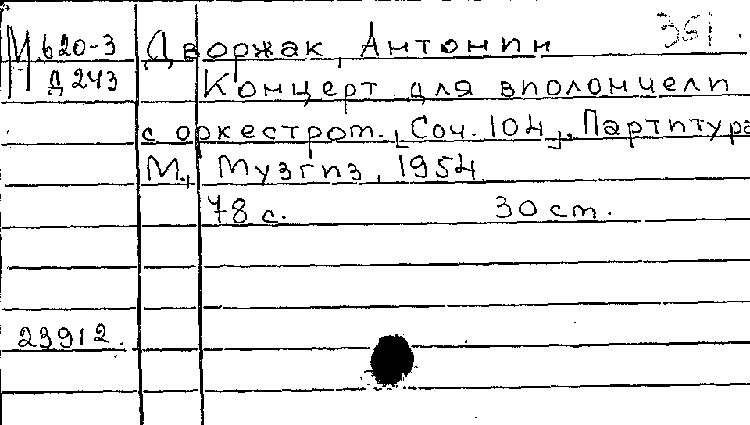 М 620-3 Дворжак, Антонин 351.
Д 243 Концерт для виолончели
с оркестром. [Соч. 104]. Партитура
М., Музгиз, 1954
78 с. 30 cm.
23912.